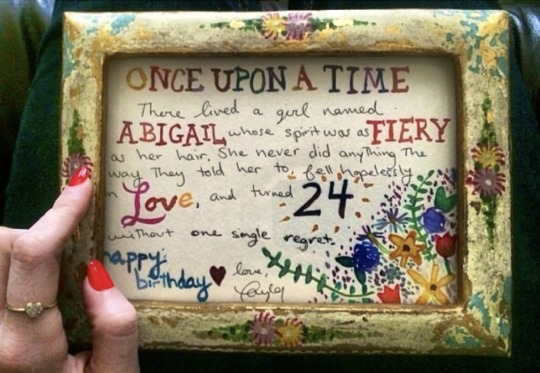 ONCE UPON A TIME
There lived a girl named
ABIGAIL whose spirit was as FIERY
as her hair. She never did anything the
way they told her to, fell hopelessly
in Love, and turned 24
without one single regret.
happy
birthday love,
Cayla